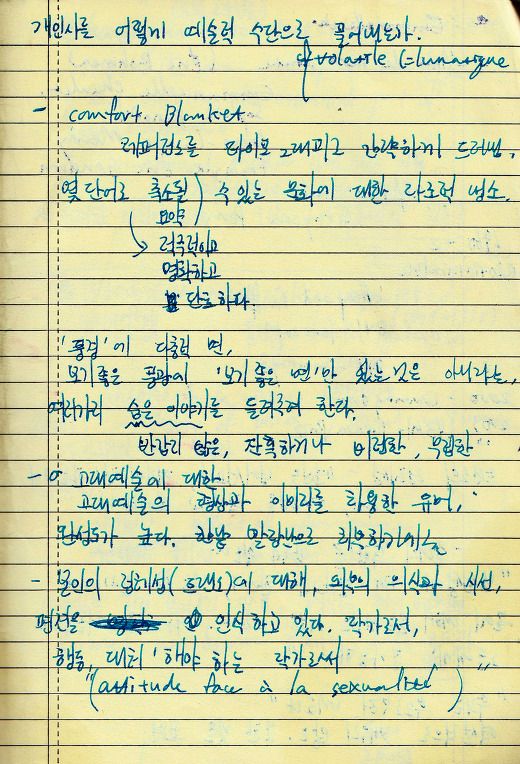 개인사를 어떻게 예술적 수단으로 풀어내는가.
volatile (=lunatique
- comfort Blanket
레퍼런스를 타이포그래피로 간략하게 드러냄.
몇 단어로 축소될 수 있는 문학에 대한 냉소.
요약
적극적이고
명확하고
단호하다.
'풍경'에 다층적 면,
보기좋은 풍광에 '보기 좋은 면'만 있는 것은 아니라는,
여러가지 숨은 이야기를 들려주려 한다.
반갑지 않은, 잔혹하거나 비겁한, 우울한
- 고대예술에 대한
고대예술의 형상과 이미지를 차용한 유머.
완성도가 높다. 한낱 말장난으로 치부하기에는
- 본인의 정체성(트랜스)에 대해, 외부의 의식과 시선,
편견을 인식하고 있다. 작가로서,
행동, 대처 '해야 하는 작가로써
"(attitude face à la sexualité)"